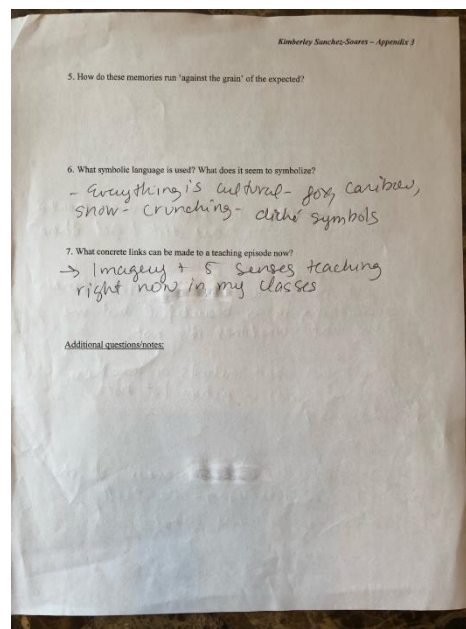 Kimberley Sanchez-Soares – Appendix 3
5. How do these memories run 'against the grain' of the expected?
6. What symbolic language is used? What does it seem to symbolize?
- Everything is cultural - fox, caribou,
snow - crunching - cliché symbols
7. What concrete links can be made to a teaching episode now?
→ Imagery + 5 senses teaching
right now in my classes
Additional questions/notes: